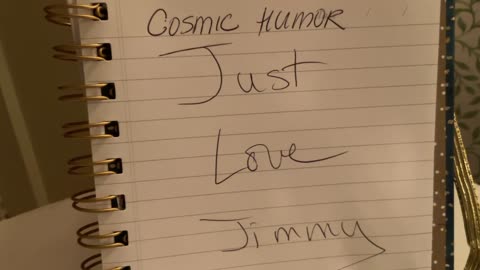 COSMIC HUMOR
Just
Love
Jimmy